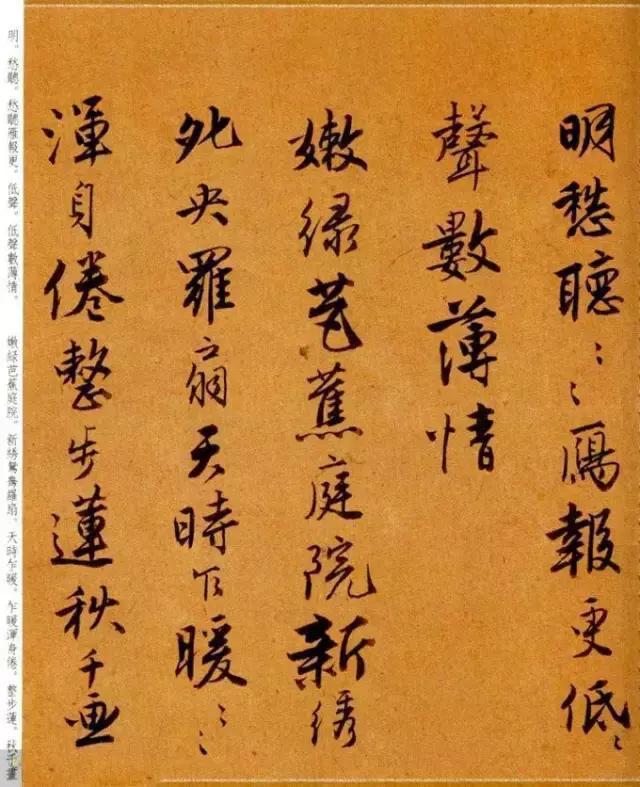 明愁聽〻〻鴈報更低〻
聲數薄情
嫩緑芭蕉庭院新綉
夗央羅扇天時乍暖〻〻
渾身倦整步蓮秋千画
明。愁聽。愁聽雁報更。低聲。低聲數薄情。　嫩緑芭蕉庭院。新綉鴛鴦羅扇。天時乍暖。乍暖渾身倦。整步蓮。秋千畫